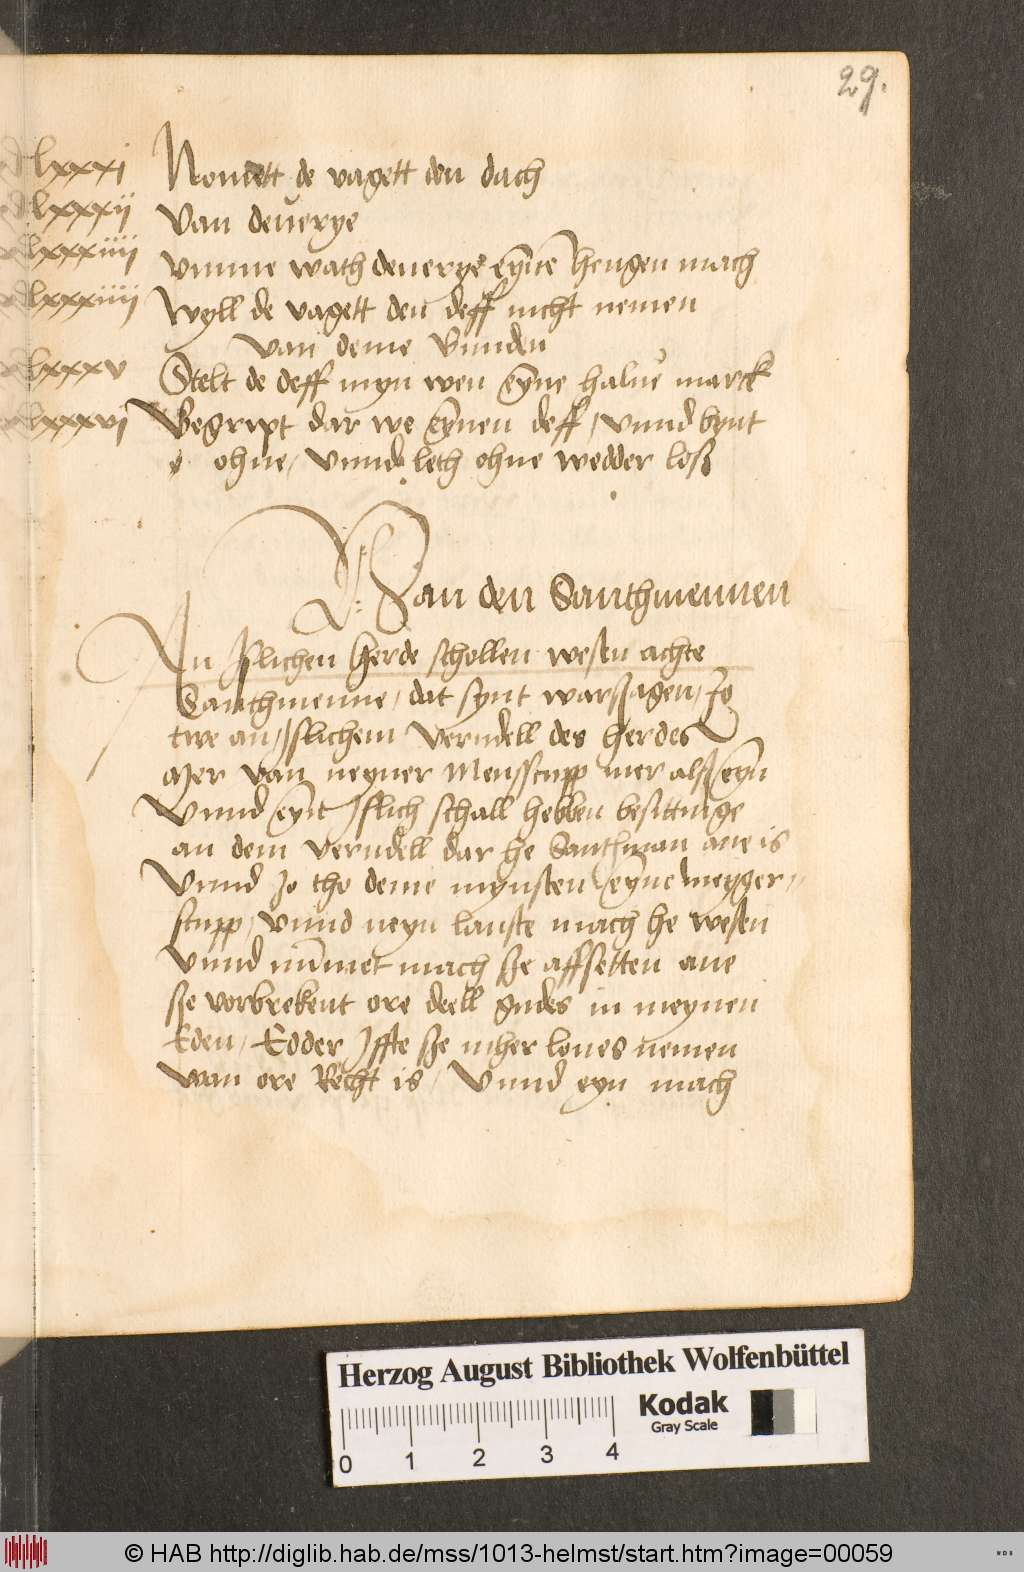 29.
lxxxi Nomett de vagett den dach
lxxxii Van deuerye
lxxxiiii Vmme wath deuerye eyne hengen mach
lxxxiiii Wyll de vagett den deff nicht nemen
Van deme Bunden
lxxxv Stelt de deff myn wen eyne halue marck
lxxxvi Begript dar we eynen deff / vnnd bynt
ohne / Vnnd leth ohne wedder loß
Van den Santhmennen
An Jslichen Herde schollen wesen achte
Santhmenne / dat synt warssagen / Jo
twe an / Jslichem Verndell des herdes
Mer van neyner Mensscupp mer alß eyn
Vnnd eynt Jslich schall hebben besittinge
an dem Verndell dar he Santhman ane is
Vnnd Jo tho deme mynsten eyne meyger
scupp / vnnd neyn lanste mach he wesen
Vnnd nummet mach sze affsetten ane
sze vorbrekent ore deell gudes in meynen
Eden / Edder Jffte sze mher loues nemen
wan ore Recht is / Vnnd eyn mach
Herzog August Bibliothek Wolfenbüttel
Kodak
Gray Scale
0 1 2 3 4
© HAB http://diglib.hab.de/mss/1013-helmst/start.htm?image=00059